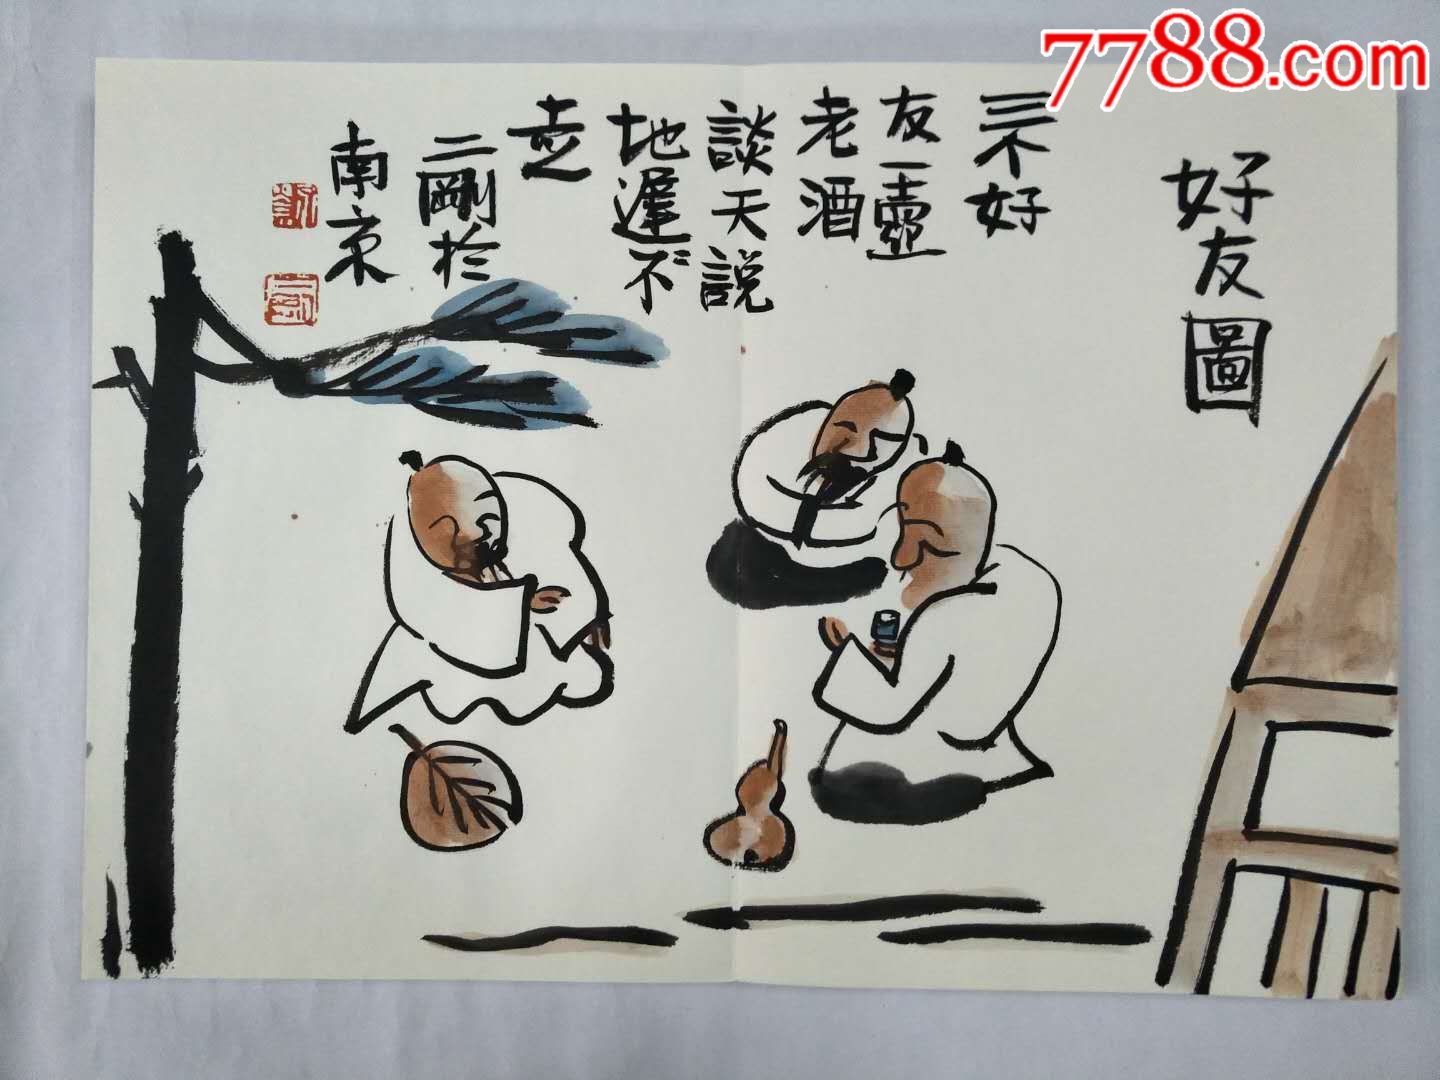 7788.com
好友圖
三个好
友一壺
老酒
談天説
地遲〻不
走
二剛於
南京